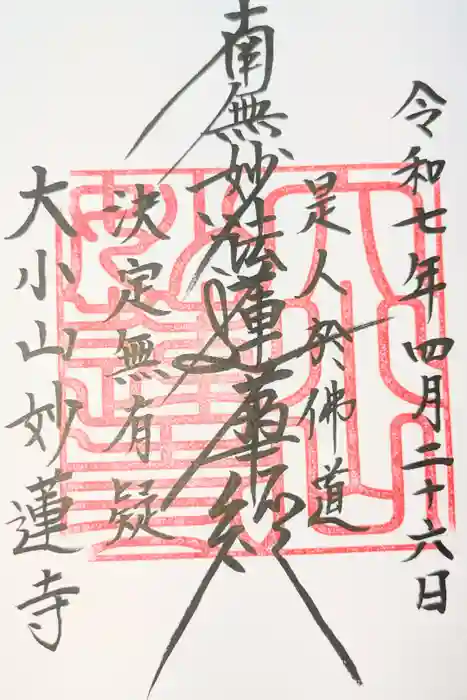 令和七年四月二十六日
是人於佛道
南無妙法蓮華經
決定無有疑
大小山妙蓮寺